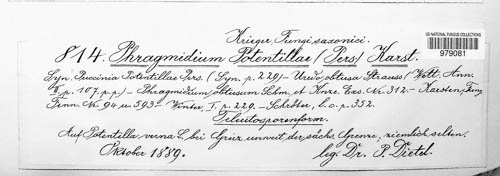 Krieger, Fungi saxonici.
US NATIONAL FUNGUS COLLECTIONS
979081
814. Phragmidium Potentillae (Pers) Karst.
Syn. Puccinia Potentillae Pers. (Syn. p. 229) - Uredo obtusa Strauss (Wett. Ann.
II, p. 107. p.p) - Phragmidium obtusum Schm. et Knze. Exs. No. 312. - Karsten, Fung
Fenn. No. 94 u. 593 - Winter, I. p. 229. - Schröter, l. c. p. 352.
Teleutosporenform.
Auf Potentilla verna L. bei Greiz unweit der sächs. Grenze, ziemlich selten.
Oktober 1889. leg. Dr. P. Dietel.